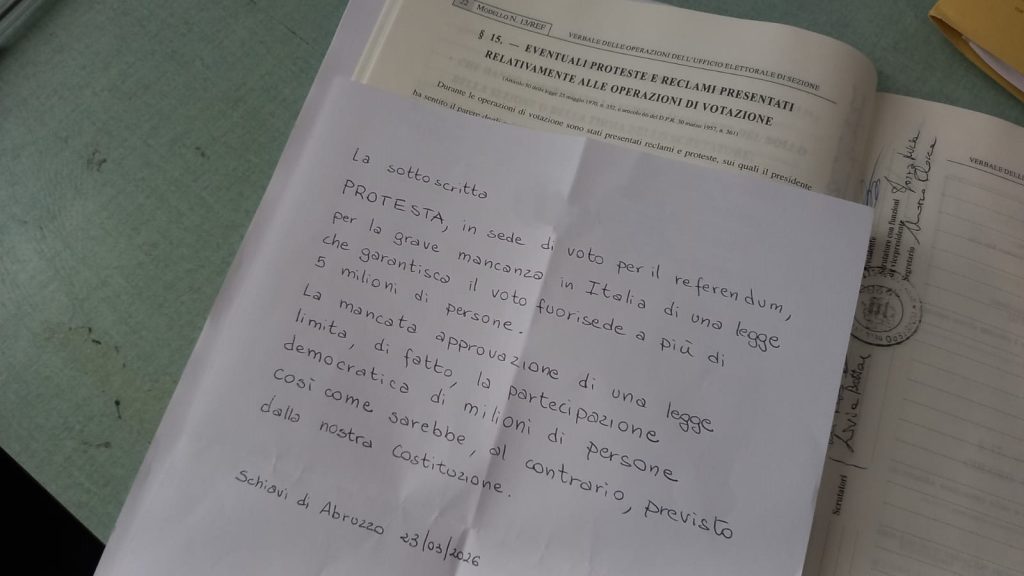 22 MODELLO N. 13/REF
VERBALE DELLE OPERAZIONI DELL'UFFICIO ELETTORALE DI SEZIONE
§ 15. — EVENTUALI PROTESTE E RECLAMI PRESENTATI
RELATIVAMENTE ALLE OPERAZIONI DI VOTAZIONE
(Articolo 50 della legge 25 maggio 1970, n. 352, e articolo 66 del D.P.R. 30 marzo 1957, n. 361)
Durante le operazioni di votazione sono stati presentati reclami e proteste, sui quali il presidente
ha sentito il parere degli
La sottoscritta
PROTESTA, in sede di voto per il referendum,
per la grave mancanza in Italia di una legge
che garantisca il voto fuorisede a più di
5 milioni di persone.
La mancata approvazione di una legge
limita, di fatto, la partecipazione
democratica di milioni di persone
così come sarebbe, al contrario, previsto
dalla nostra Costituzione.
Schiavi di Abruzzo 23/03/2026
VERBALE DELLE
Scrutatore con funzioni
di vicepresidente
Segretario
Scrutatori